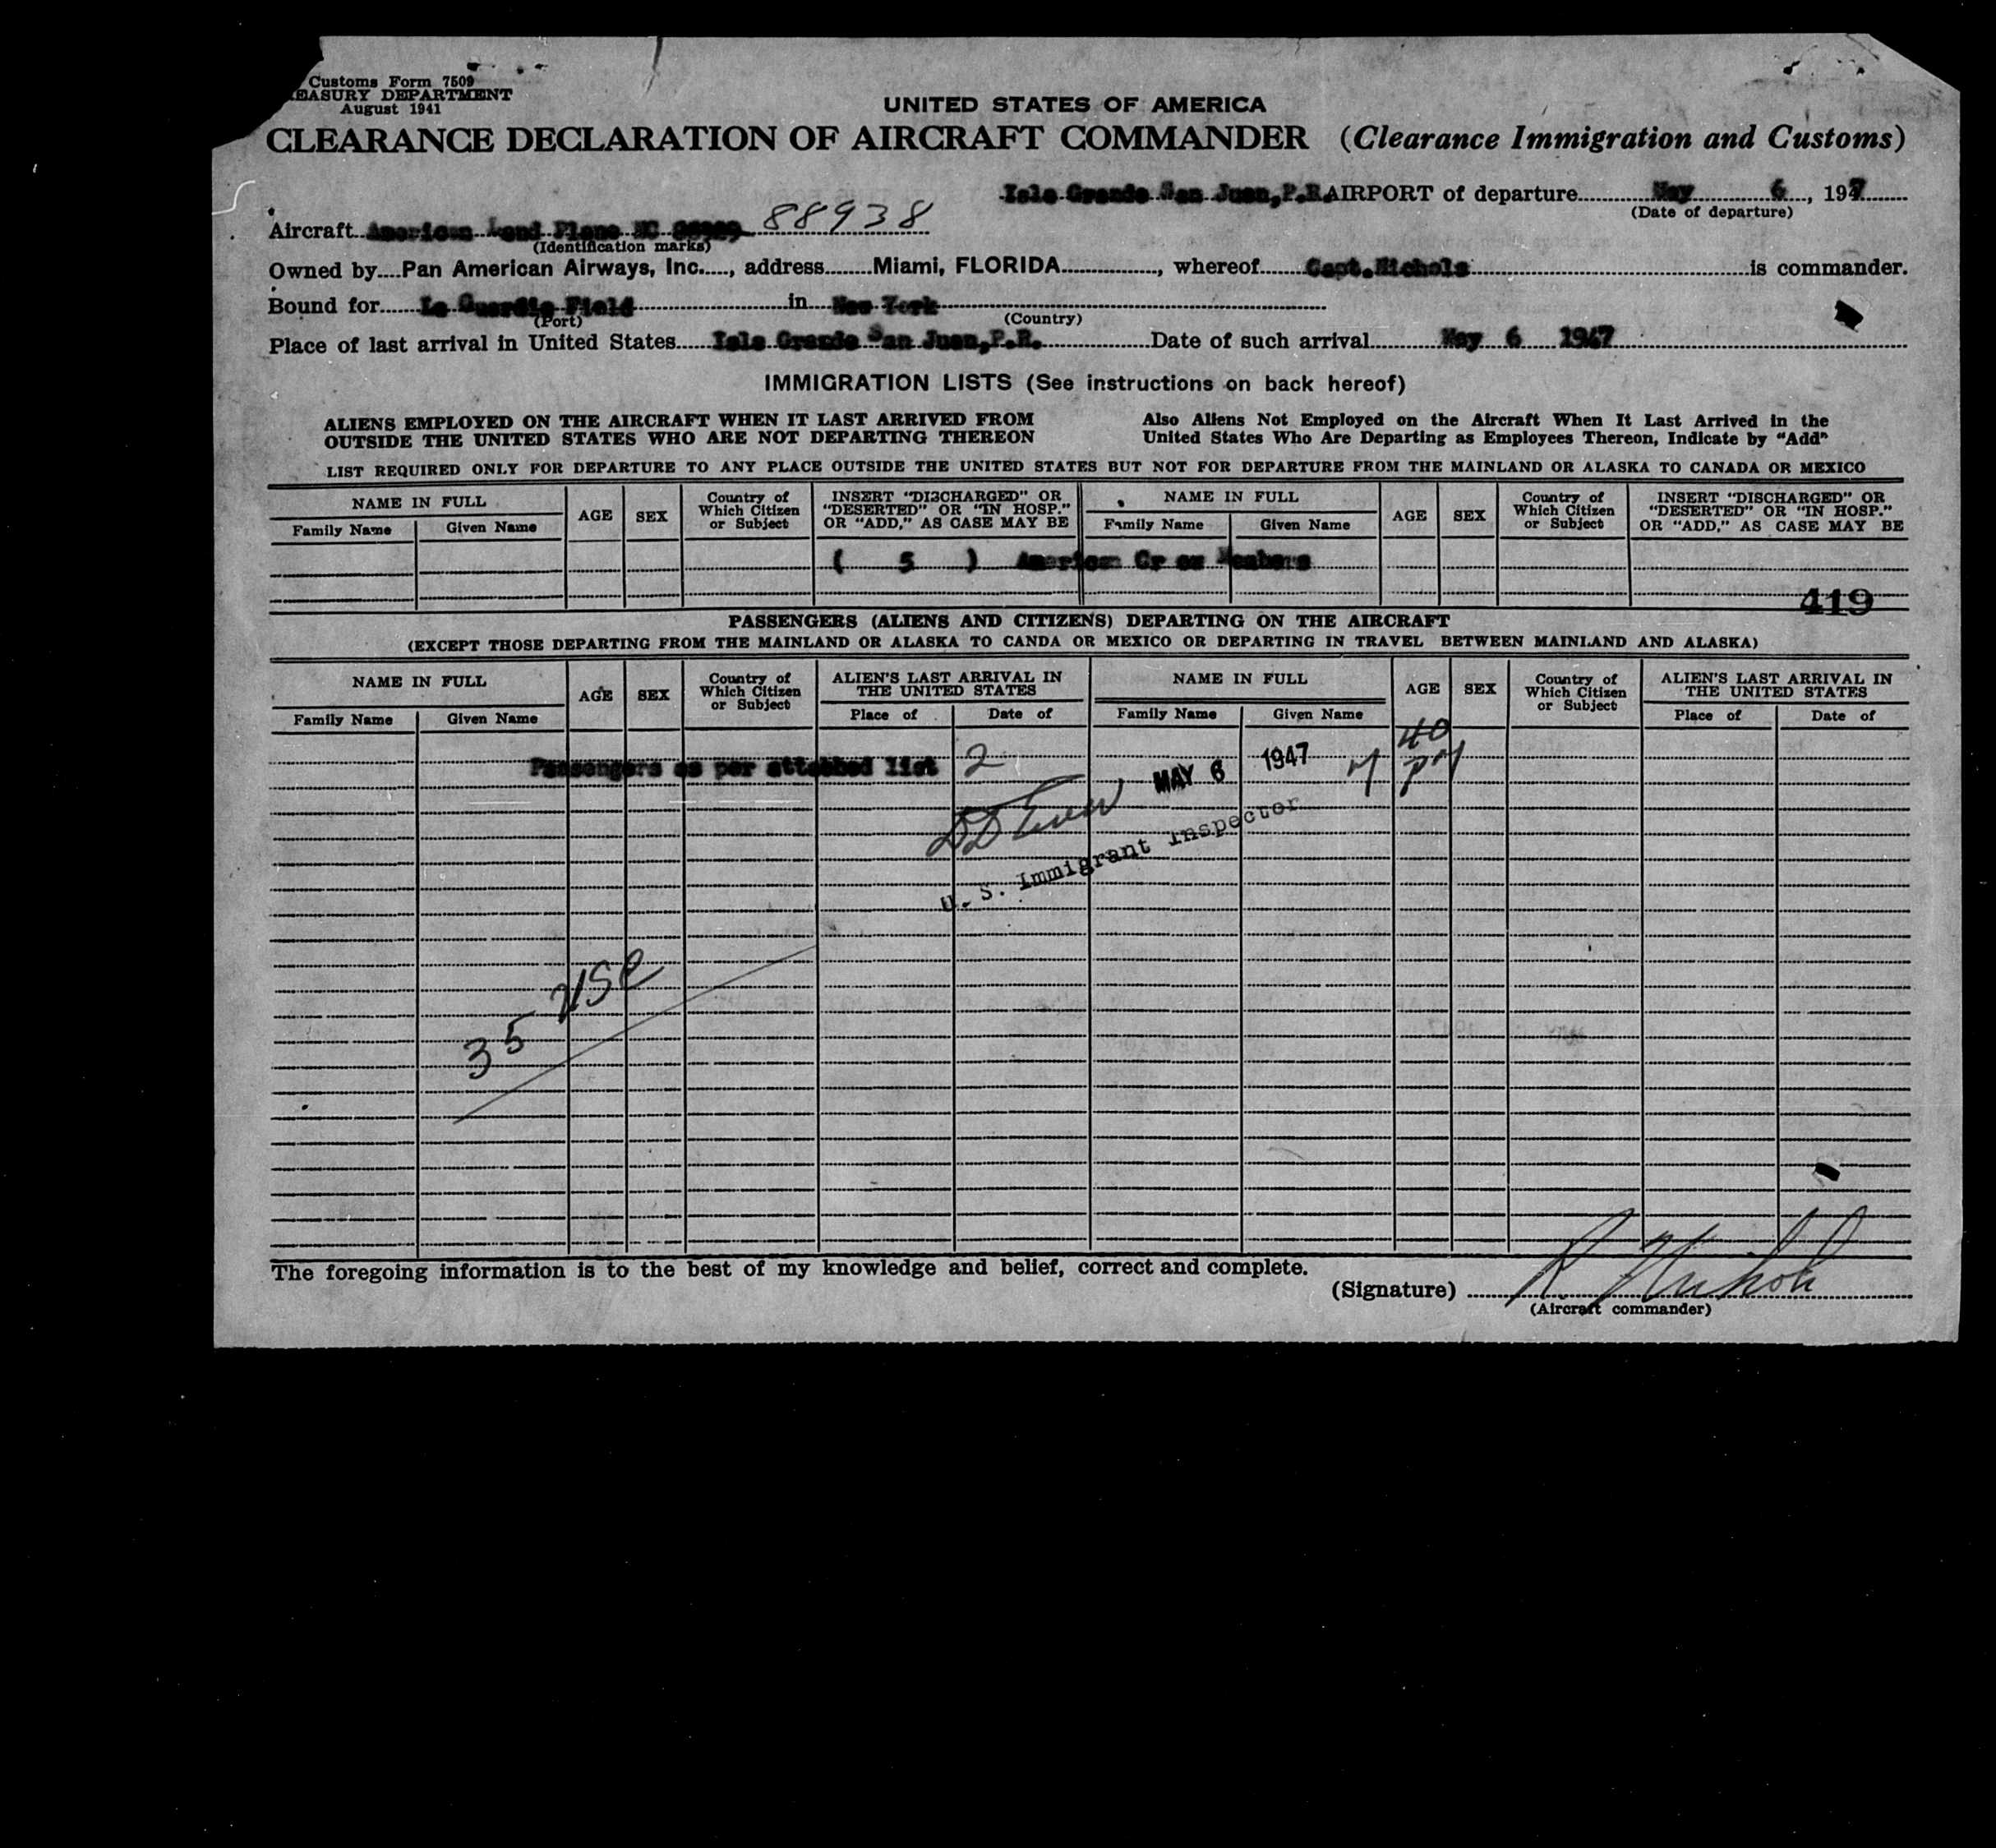 Customs Form 7509
EASURY DEPARTMENT
August 1941
UNITED STATES OF AMERICA
CLEARANCE DECLARATION OF AIRCRAFT COMMANDER (Clearance Immigration and Customs)
Isla Grande San Juan,P.R. AIRPORT of departure May 6, 1947
(Date of departure)
Aircraft American Land Plane NC 88938
(Identification marks)
Owned by Pan American Airways, Inc., address Miami, FLORIDA, whereof Capt.Nichols is commander.
Bound for La Guardia Field in New York
(Port) (Country)
Place of last arrival in United States Isla Grande San Juan,P.R. Date of such arrival May 6 1947
IMMIGRATION LISTS (See instructions on back hereof)
ALIENS EMPLOYED ON THE AIRCRAFT WHEN IT LAST ARRIVED FROM
OUTSIDE THE UNITED STATES WHO ARE NOT DEPARTING THEREON
Also Aliens Not Employed on the Aircraft When It Last Arrived in the
United States Who Are Departing as Employees Thereon, Indicate by "Add"
LIST REQUIRED ONLY FOR DEPARTURE TO ANY PLACE OUTSIDE THE UNITED STATES BUT NOT FOR DEPARTURE FROM THE MAINLAND OR ALASKA TO CANADA OR MEXICO
NAME IN FULL
Family Name Given Name
AGE
SEX
Country of
Which Citizen
or Subject
INSERT "DISCHARGED" OR
"DESERTED" OR "IN HOSP."
OR "ADD," AS CASE MAY BE
NAME IN FULL
Family Name Given Name
AGE
SEX
Country of
Which Citizen
or Subject
INSERT "DISCHARGED" OR
"DESERTED" OR "IN HOSP."
OR "ADD," AS CASE MAY BE
( 5 ) American Cr ew Members
419
PASSENGERS (ALIENS AND CITIZENS) DEPARTING ON THE AIRCRAFT
(EXCEPT THOSE DEPARTING FROM THE MAINLAND OR ALASKA TO CANDA OR MEXICO OR DEPARTING IN TRAVEL BETWEEN MAINLAND AND ALASKA)
NAME IN FULL
Family Name Given Name
AGE
SEX
Country of
Which Citizen
or Subject
ALIEN'S LAST ARRIVAL IN
THE UNITED STATES
Place of Date of
NAME IN FULL
Family Name Given Name
AGE
SEX
Country of
Which Citizen
or Subject
ALIEN'S LAST ARRIVAL IN
THE UNITED STATES
Place of Date of
40
Passengers as per attached list 2 MAY 6 1947 PM
U. S. Immigrant Inspector
35 USC
The foregoing information is to the best of my knowledge and belief, correct and complete.
(Signature) R Nichols
(Aircraft commander)